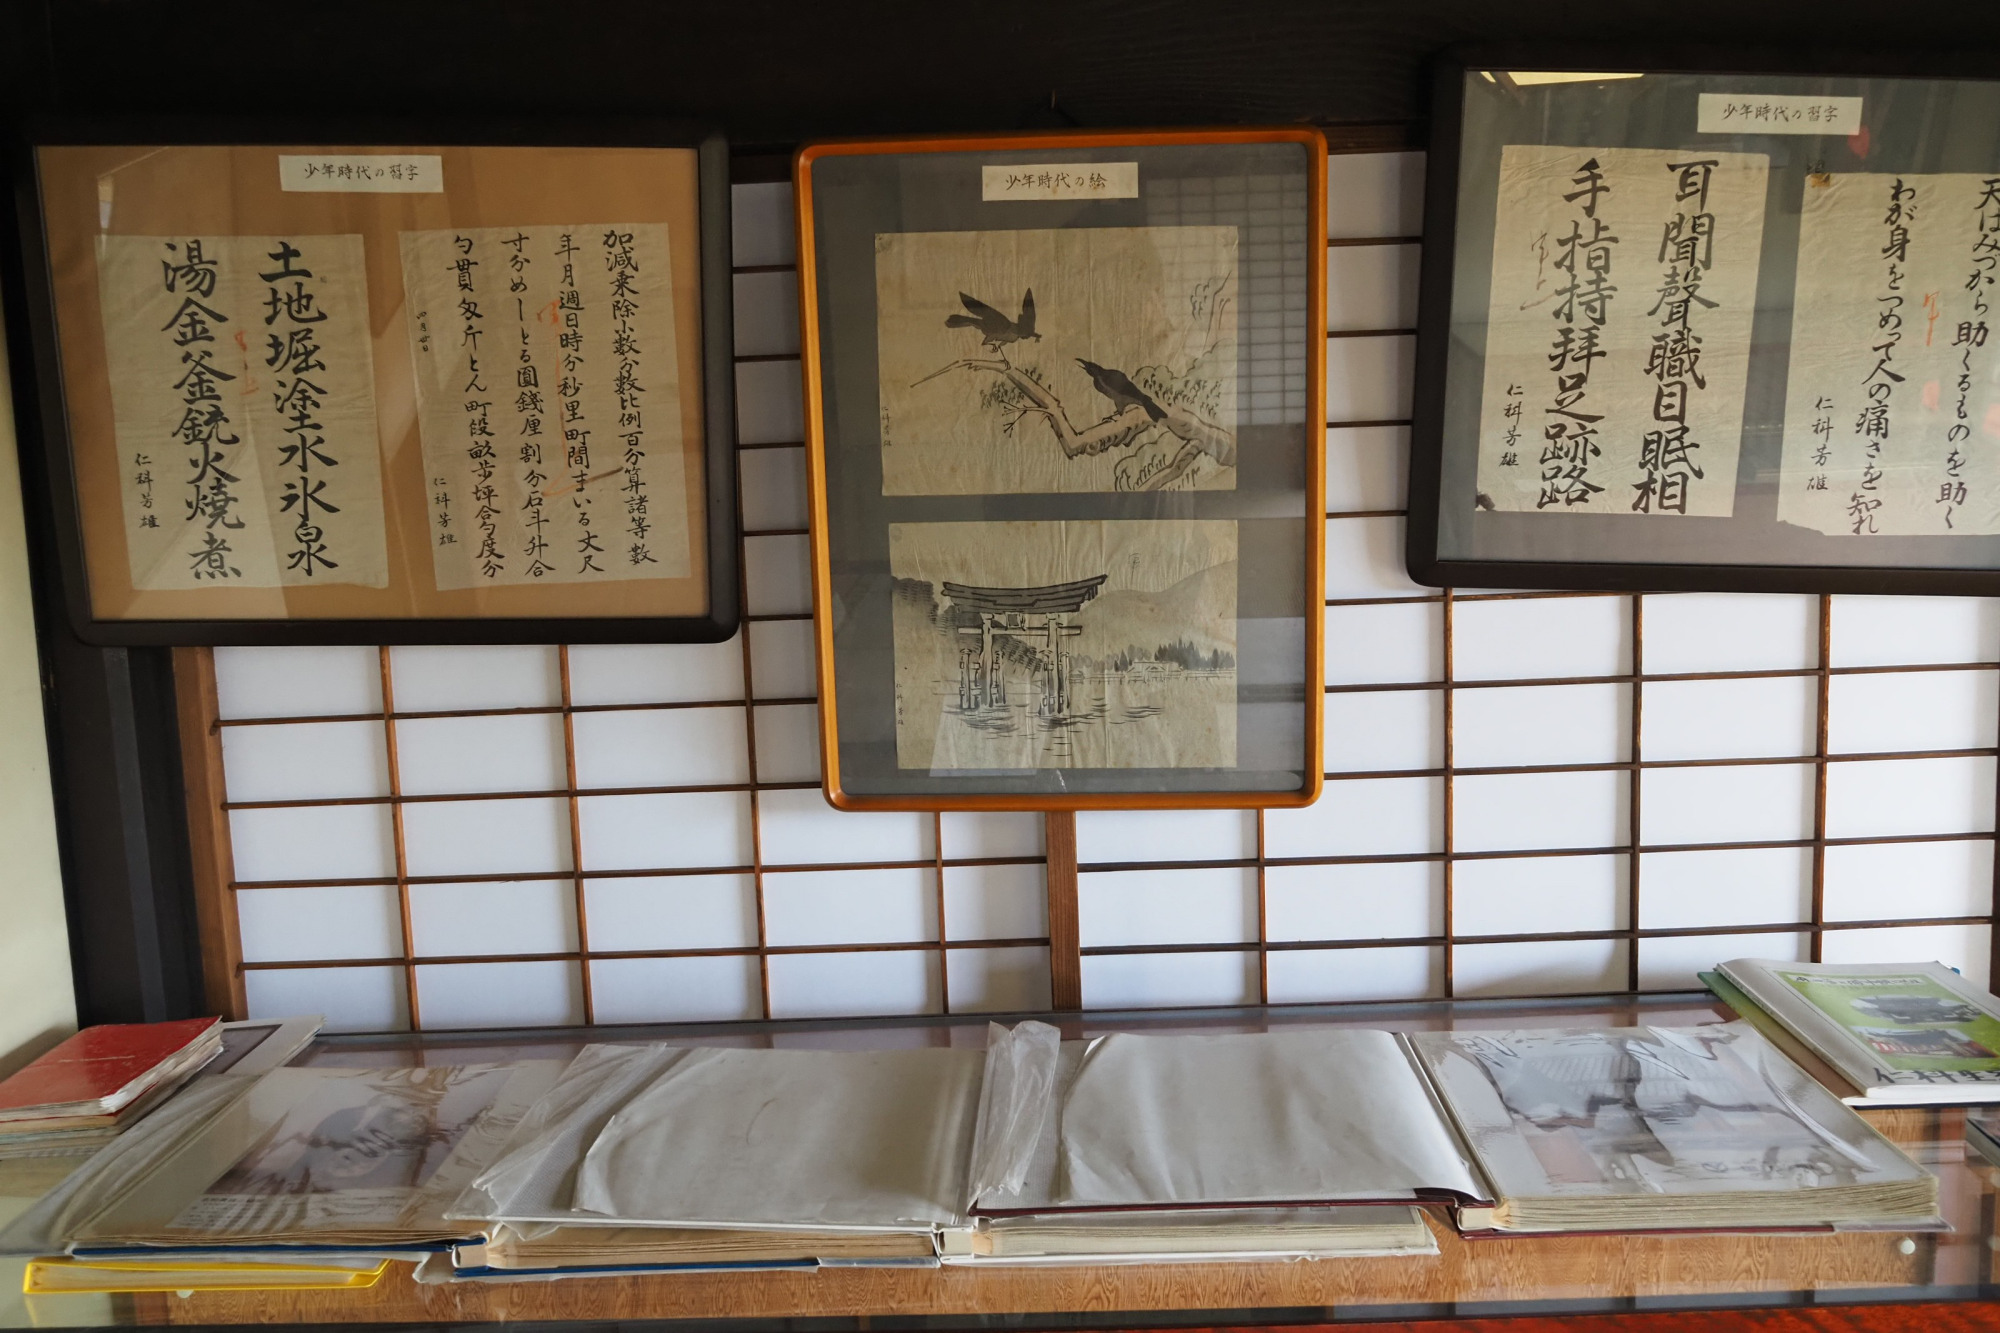 少年時代の習字
加減乗除小数分数比例百分算諸等数
年月週日時分秒里町間まいる丈尺
寸分めーとる圓錢厘割分石斗升合
勺貫匁斤とん町段畝歩坪合勺度分
四月廿日
仁科芳雄
土地堀塗水氷泉
湯金釜銃火焼煮
仁科芳雄
少年時代の絵
仁科芳雄
仁科芳雄
少年時代の習字
天はみづから助くるものを助く
わが身をつめって人の痛さを知れ
仁科芳雄
耳聞聲職目眠相
手指持拜足跡路
仁科芳雄